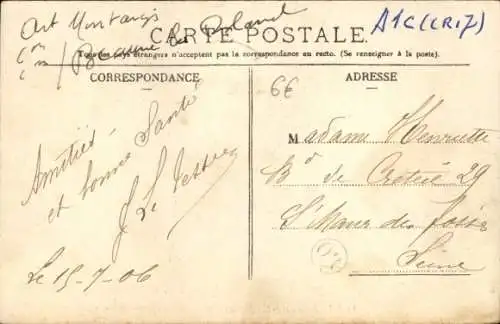 Art Montargis
Con
Con / Beaune la Roland
A1c(LR17)
CARTE POSTALE.
Tous les pays étrangers n'acceptent pas la correspondance au recto. (Se renseigner à la poste).
CORRESPONDANCE
ADRESSE
6€
Amitiés
et bonne Santé
Le 15-7-06
Madame Henriette
Bd de Créteil 29
St Maur des Fossés
Seine